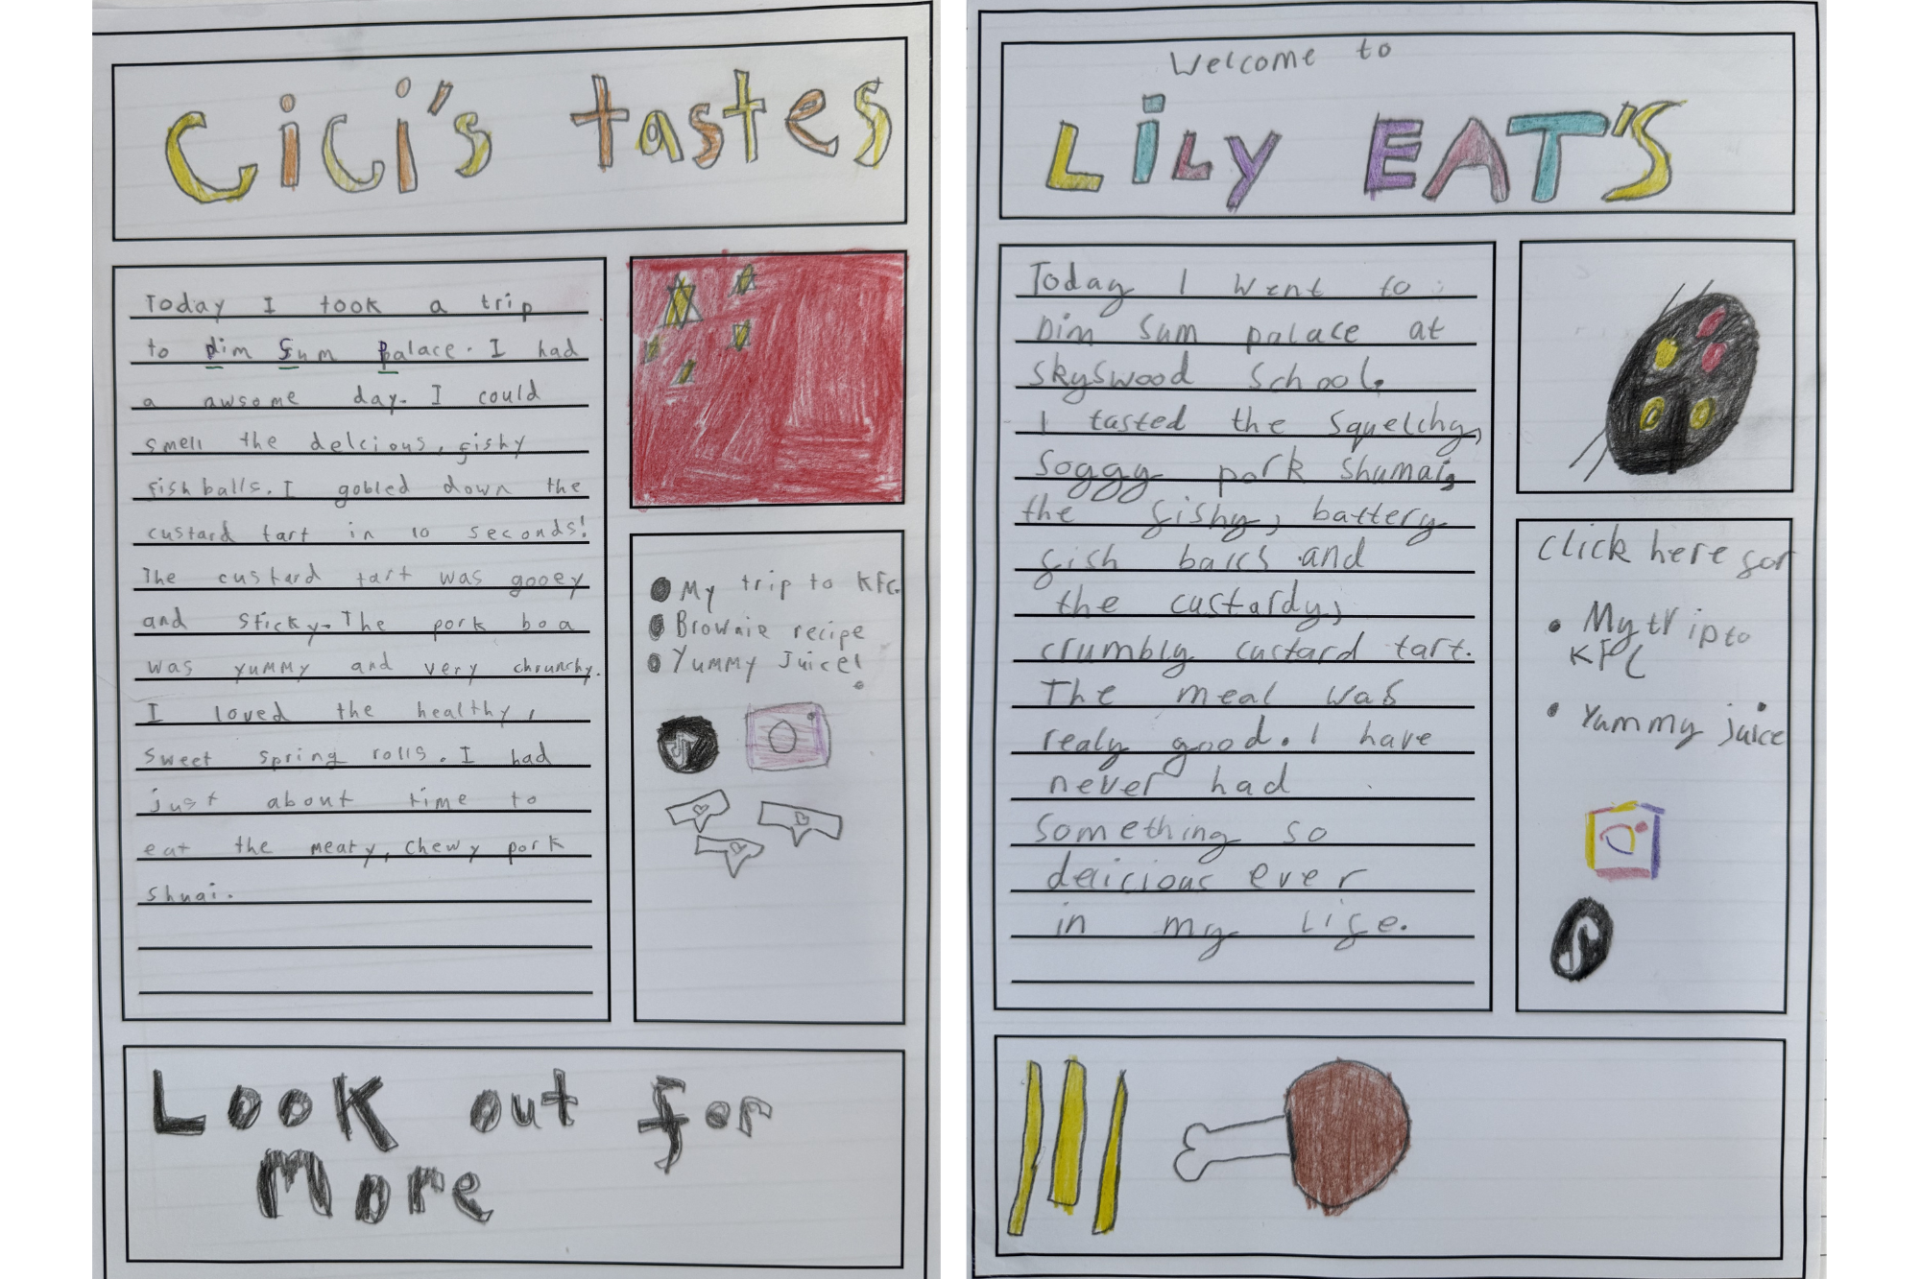 Cici's tastes
Today I took a trip
to Dim Sum Palace. I had
a awsome day. I could
smell the delcious, fishy
fish balls. I gobled down the
custard tart in 10 seconds!
The custard tart was gooey
and sticky. The pork boa
was yummy and very chrunchy.
I loved the healthy,
sweet spring rolls. I had
just about time to
eat the meaty, chewy pork
shuai.
My trip to KFC.
Brownie recipe
Yummy Juice!
Look out for
More
Welcome to
LiLy EAT'S
Today I went to
Dim Sum palace at
skyswood School.
I tasted the squelchy,
soggy pork shumai,
the fishy, battery
fish balls and
the custardy,
crumbly custard tart.
The meal was
realy good. I have
never had
something so
delicious ever
in my life.
click here for
• My trip to
KFC
• Yummy juice